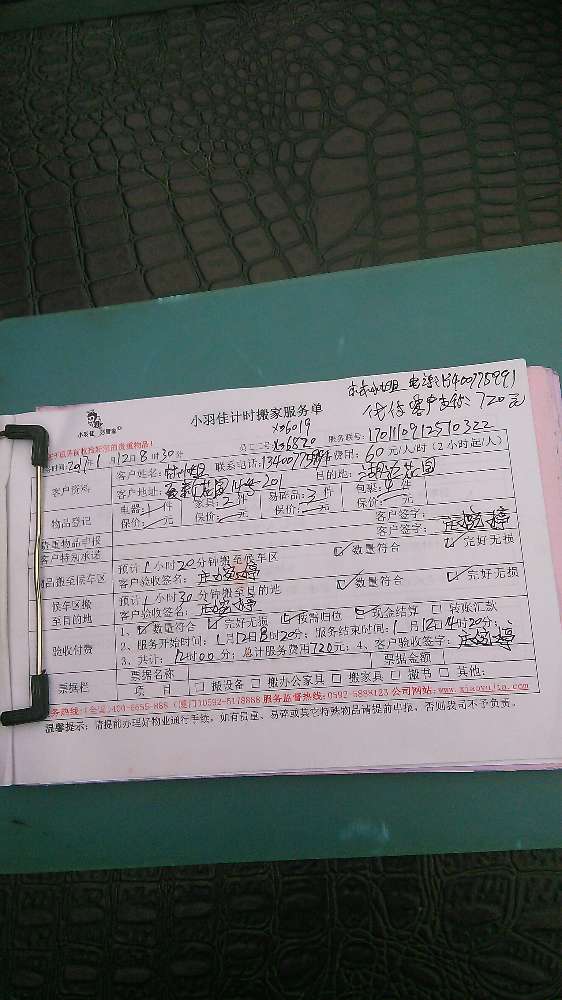 电话:13400775991
客户支付:720元
小羽佳 搬家
小羽佳计时搬家服务单
X06019
X06520
服务联号:170111091257 0322
时间:2017年1月12日8时30分
客户资格
客户姓名: 小姐 联系电话:13400775991 费用:60元/人/时(2小时起/人)
客户地址: 花园14号201 目的地: 花园
物品登记
电器:1件 家具:2件 易碎品:3件 包装:4件
保价: 元 保价: 元 保价: 元
贵重物品申报 客户签字:
客户特别承诺 客户签字:
物品搬至候车区
预计1小时20分钟搬至候车区 ☑数量符合 ☑完好无损
客户验收签名:
候车区搬至目的地
预计1小时30分钟搬至目的地 ☑数量符合 ☑完好无损
客户验收签名:
验收付费
1、☑数量符合 ☑完好无损 ☑按需归位 ☑现金结算 □转账汇款
2、服务开始时间:1月12日8时20分;服务结束时间:1月12日14时20分;
3、共计:12时00分;总计服务费用720元;4、客户验收签字:
票据栏
票据名称 票据金额
项 目 □搬设备 □搬办公家具 □搬家具 □搬书 □其他:
服务热线:(全国)400-6655-888 (厦门)0592-5178888 服务监督热线:0592-5888123 公司网站:www.xiaoyujia.com
温馨提示:请提前办理好物业通行手续,如有贵重、易碎或其它特殊物品请提前申报,否则我司不予负责。